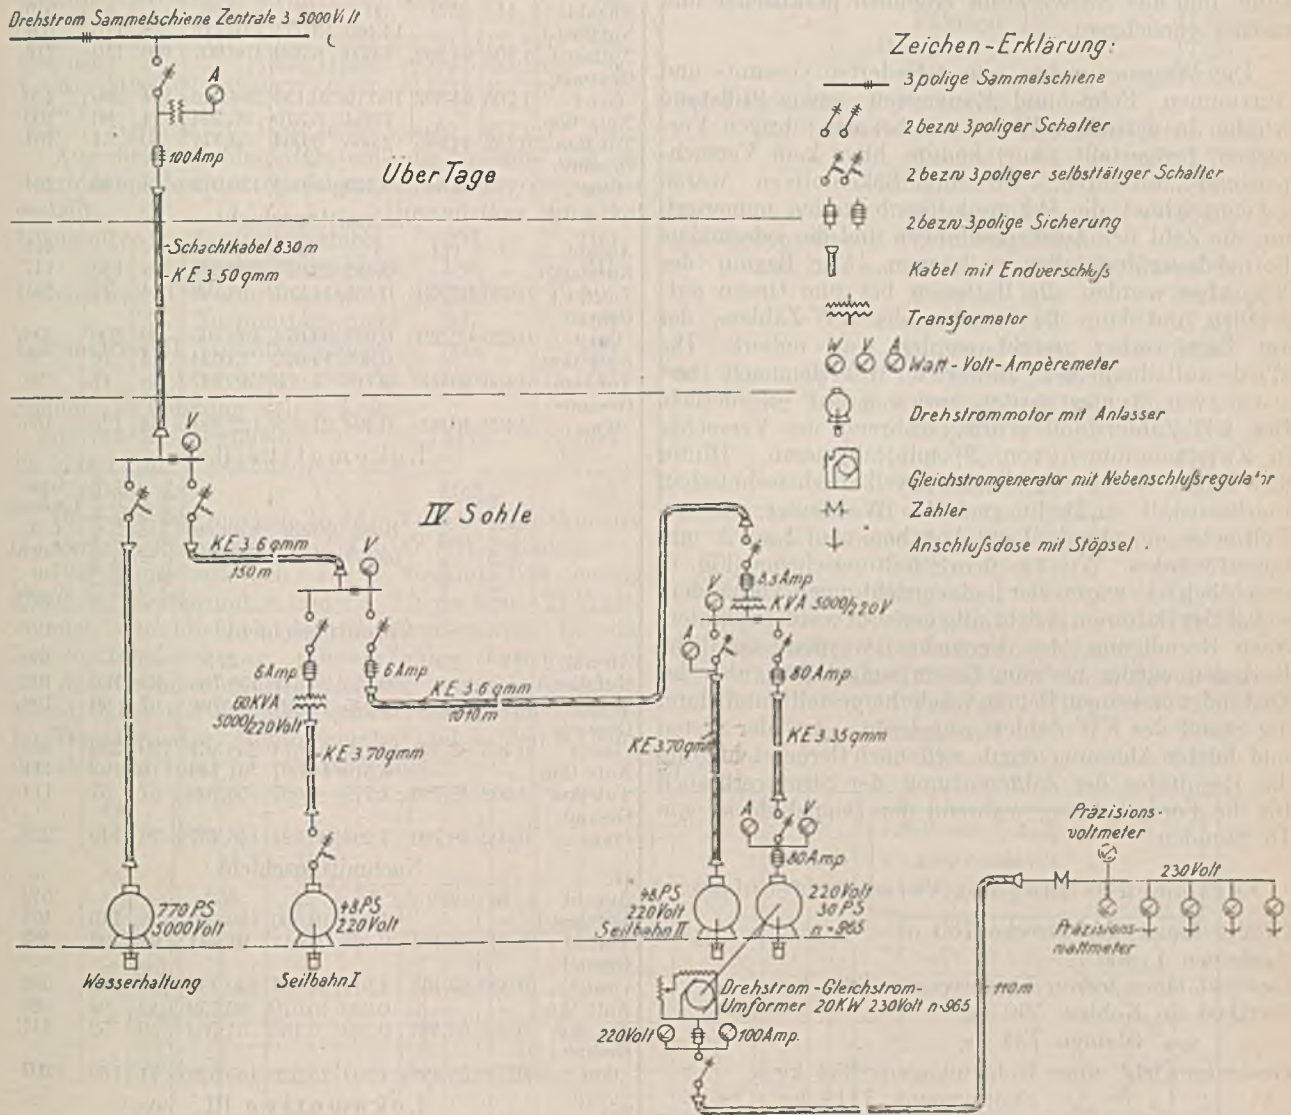 Drehstrom Sammelschiene Zentrale 3. 5000 Volt
A
100 Amp
Über Tage
Schachtkabel 830 m
KE 3.50 qmm
V
IV. Sohle
KE 3.6 qmm
150 m
V
6 Amp
6 Amp
60 KVA
5000/220 Volt
KE 3.70 qmm
KE 3.6 qmm
1010 m
8.5 Amp
V
KVA 5000/220 V
A
80 Amp
KE 3.70 qmm
KE 3.35 qmm
A
V
80 Amp
770 PS
5000 Volt
48 PS
220 Volt
48 PS
220 Volt
Seilbahn II
220 Volt
30 PS
n = 965
Wasserhaltung
Seilbahn I
Drehstrom-Gleichstrom-
Umformer 20 KW 230 Volt n=965
220 Volt
100 Amp.
110 m
Präzisions-
voltmeter
230 Volt
Präzisions-
wattmeter
Zeichen-Erklärung:
3 polige Sammelschiene
2 bezw 3 poliger Schalter
2 bezw 3 poliger selbsttätiger Schalter
2 bezw 3 polige Sicherung
Kabel mit Endverschluß
Transformator
W V A
Watt-Volt-Ampèremeter
Drehstrommotor mit Anlasser
Gleichstromgenerator mit Nebenschlußregulator
Zähler
Anschlußdose mit Stöpsel.